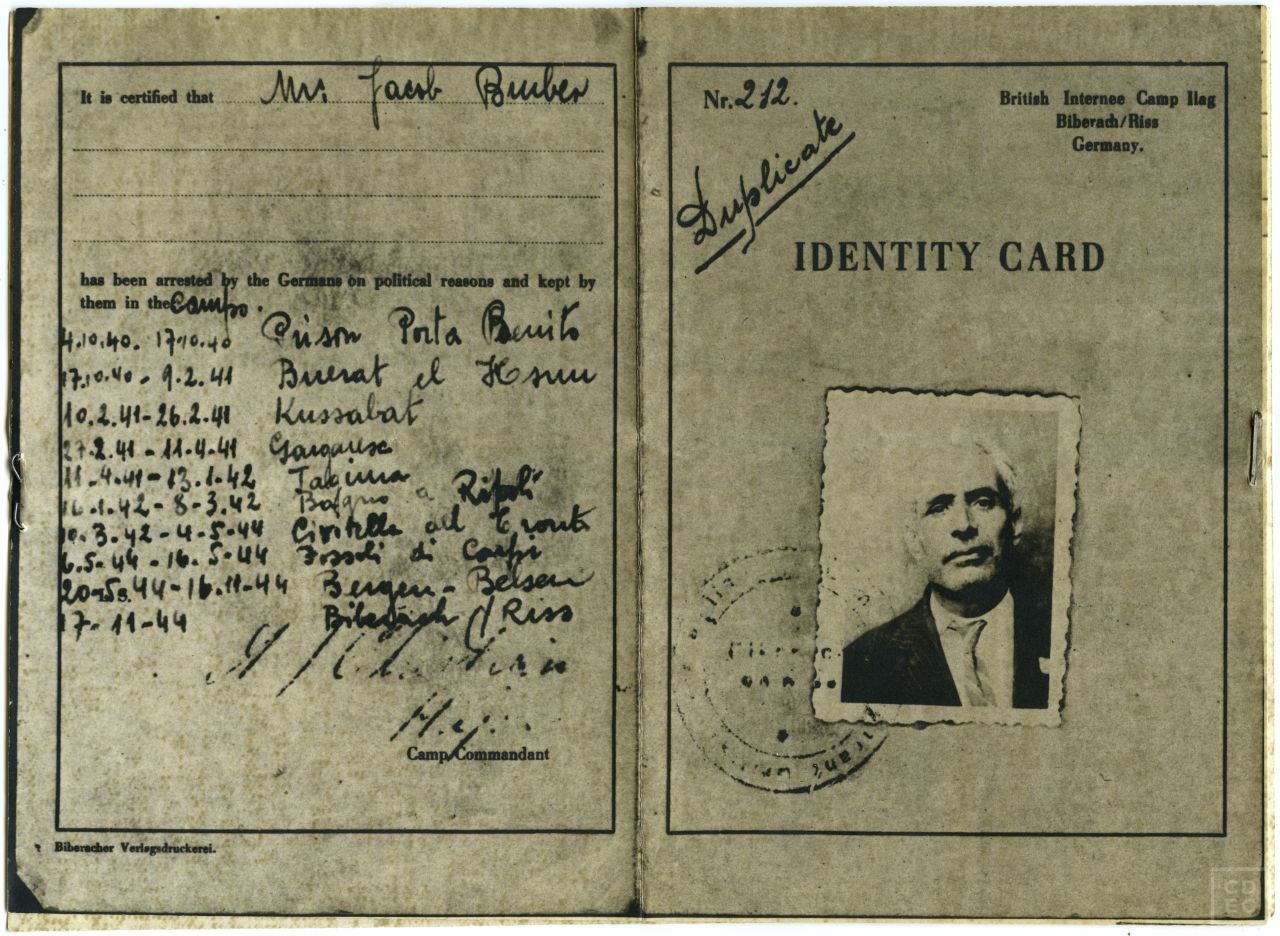 It is certified that Mr: Jacob Bember
has been arrested by the Germans on political reasons and kept by
them in the Camps.
4.10.40. 17.10.40 Prison Porta Benito
17.10.40 - 9.2.41 Buerat el Hsun
10.2.41 - 26.2.41 Kussabat
27.2.41 - 11.4.41 Gargaresc
11.4.41 - 13.1.42
16.1.42 - 8-3.42 Bagno a Ripoli
10.3.42 - 4-5-44 Civitella del Tronto
6.5-44 - 16.5-44 Fossoli di Carpi
20-5.44 - 16.11-44 Bergen-Belsen
17-11-44 Biberach / Riss
Camp Commandant
Biberacher Verlagsdruckerei.
Nr. 212.
British Internee Camp Ilag
Biberach/Riss
Germany.
Duplicate
IDENTITY CARD
CD
EC